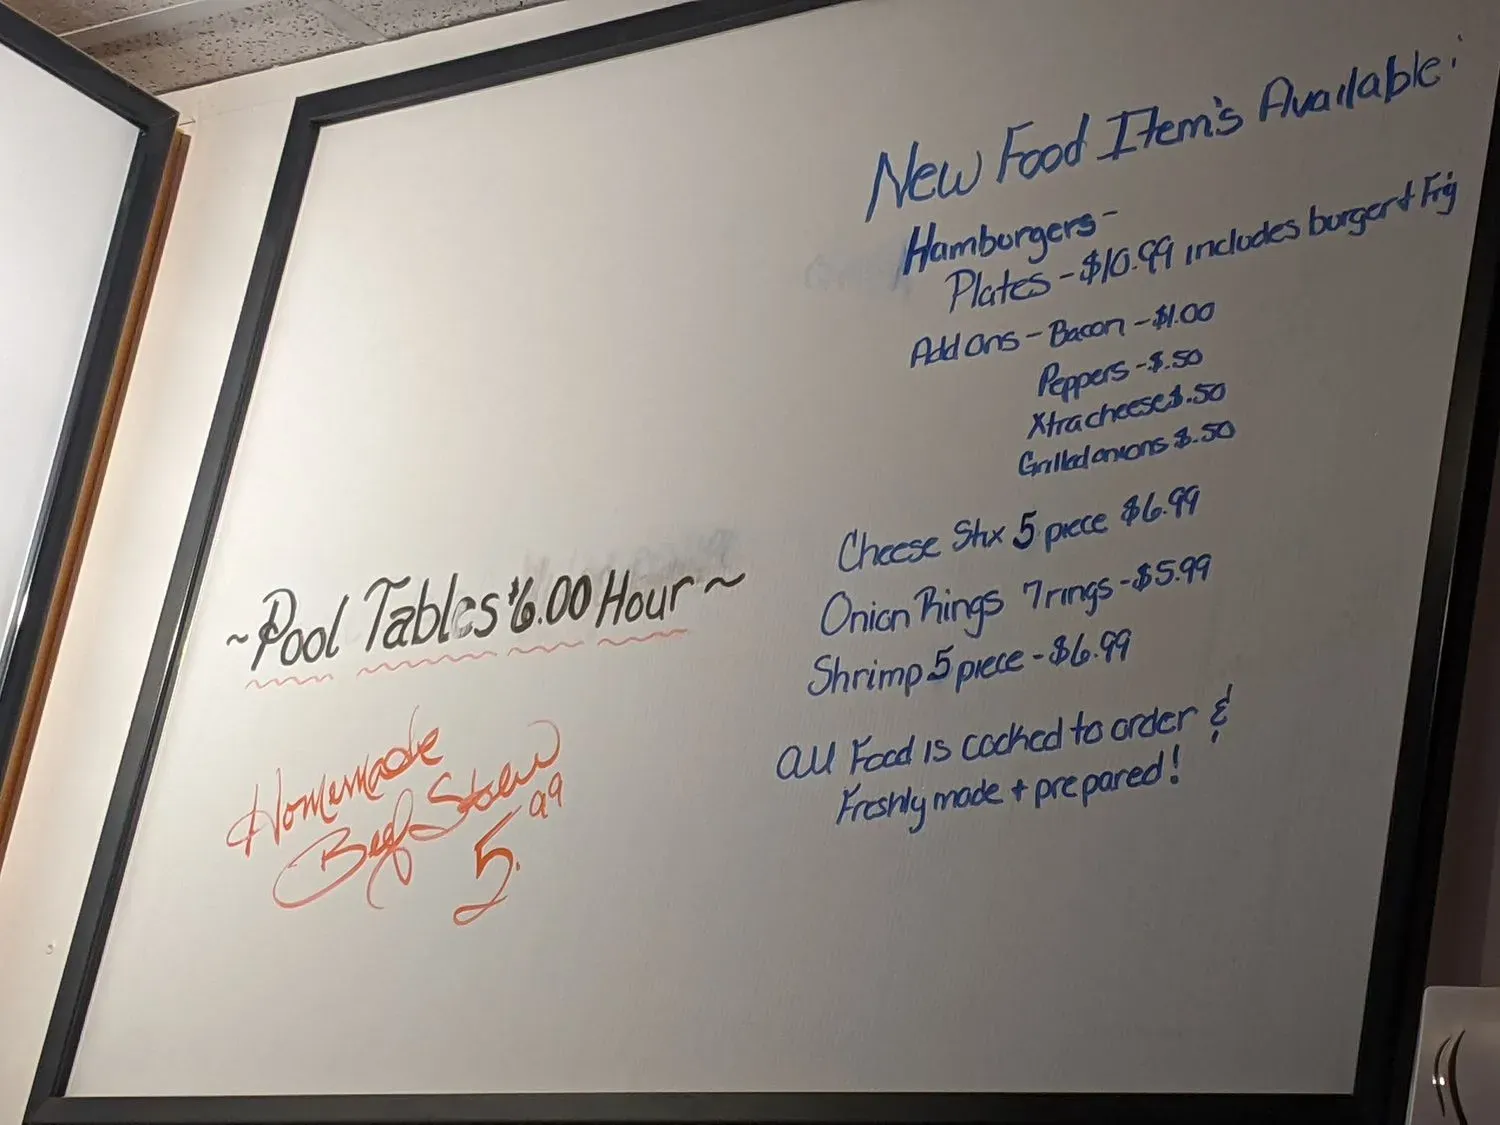 New Food Item's Available:
Hamburgers -
Plates - $10.99 includes burger + Fry
Add ons - Bacon - $1.00
Peppers - $.50
Xtra cheese $.50
Grilled onions $.50
Cheese Stix 5 piece $6.99
Onion Rings 7 rings - $5.99
Shrimp 5 piece - $6.99
All Food is cooked to order &
Freshly made + prepared!
~ Pool Tables $6.00 Hour ~
Homemade
Beef Stew
5.99